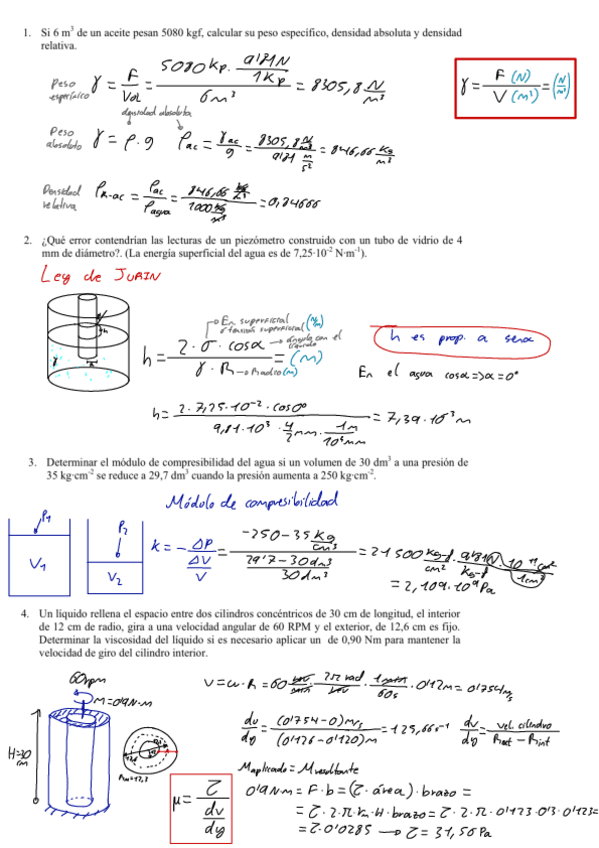 1. Si 6 m³ de un aceite pesan 5080 kgf, calcular su peso específico, densidad absoluta y densidad
relativa.
Peso específico γ = F/Vol = (5080 kp · 9'81N/1Kp)/6m³ = 8305,8 N/m³
γ = F (N)/V (m³) = (N/m³)
densidad absoluta
Peso absoluto γ = ρ · g ρac = γac/g = (8305,8 N/m³)/(9'81 m/s²) = 846,66 Kg/m³
Densidad relativa ρR-ac = ρac/ρagua = = 0,84666
2. ¿Qué error contendrían las lecturas de un piezómetro construido con un tubo de vidrio de 4
mm de diámetro?. (La energía superficial del agua es de 7,25·10⁻² N·m⁻¹).
Ley de JURIN
En superficial
tension superficial (N/m)
ángulo con el líquido
h = (2 · σ · cosα)/(γ · R) = (m)
Radio (m)
h es prop. a
En el agua cosα => α = 0°
h = (2 · 7,25 · 10⁻² · cos0°)/(9,81 · 10³ · 4/2 mm · 1m/10³mm) = 7,39 · 10⁻³ m
3. Determinar el módulo de compresibilidad del agua si un volumen de 30 dm³ a una presión de
35 kg·cm⁻² se reduce a 29,7 dm³ cuando la presión aumenta a 250 kg·cm⁻².
Módulo de compresibilidad
P1
P2
V1
V2
k = - ΔP/(ΔV/V) = = 21500 kg-f/cm² · 9'81N/kg-f · 10⁴ cm²/1cm²
= 2,109 · 10⁹ Pa
4. Un líquido rellena el espacio entre dos cilindros concéntricos de 30 cm de longitud, el interior
de 12 cm de radio, gira a una velocidad angular de 60 RPM y el exterior, de 12,6 cm es fijo.
Determinar la viscosidad del líquido si es necesario aplicar un de 0,90 Nm para mantener la
velocidad de giro del cilindro interior.
60rpm
M=0'9N·m
V = ω · R = 60 · 2π rad · 1/60s · 0'12m = 0'754 m/s
dv/dy = (0'754 - 0) m/s/(0'126 - 0'120) m = 125,66 s⁻¹ dv/dy = vel. cilindro/Rext - Rint
H=30 cm
Maplicado = Mresultante
μ = τ/(dv/dy)
0'9Nm = F · b = (τ · área) · brazo =
= τ · 2 · π · rm · H · brazo = τ · 2 · π · 0'123 · 0'3 · 0'123 =
= τ · 0'0285 → τ = 31,56 Pa